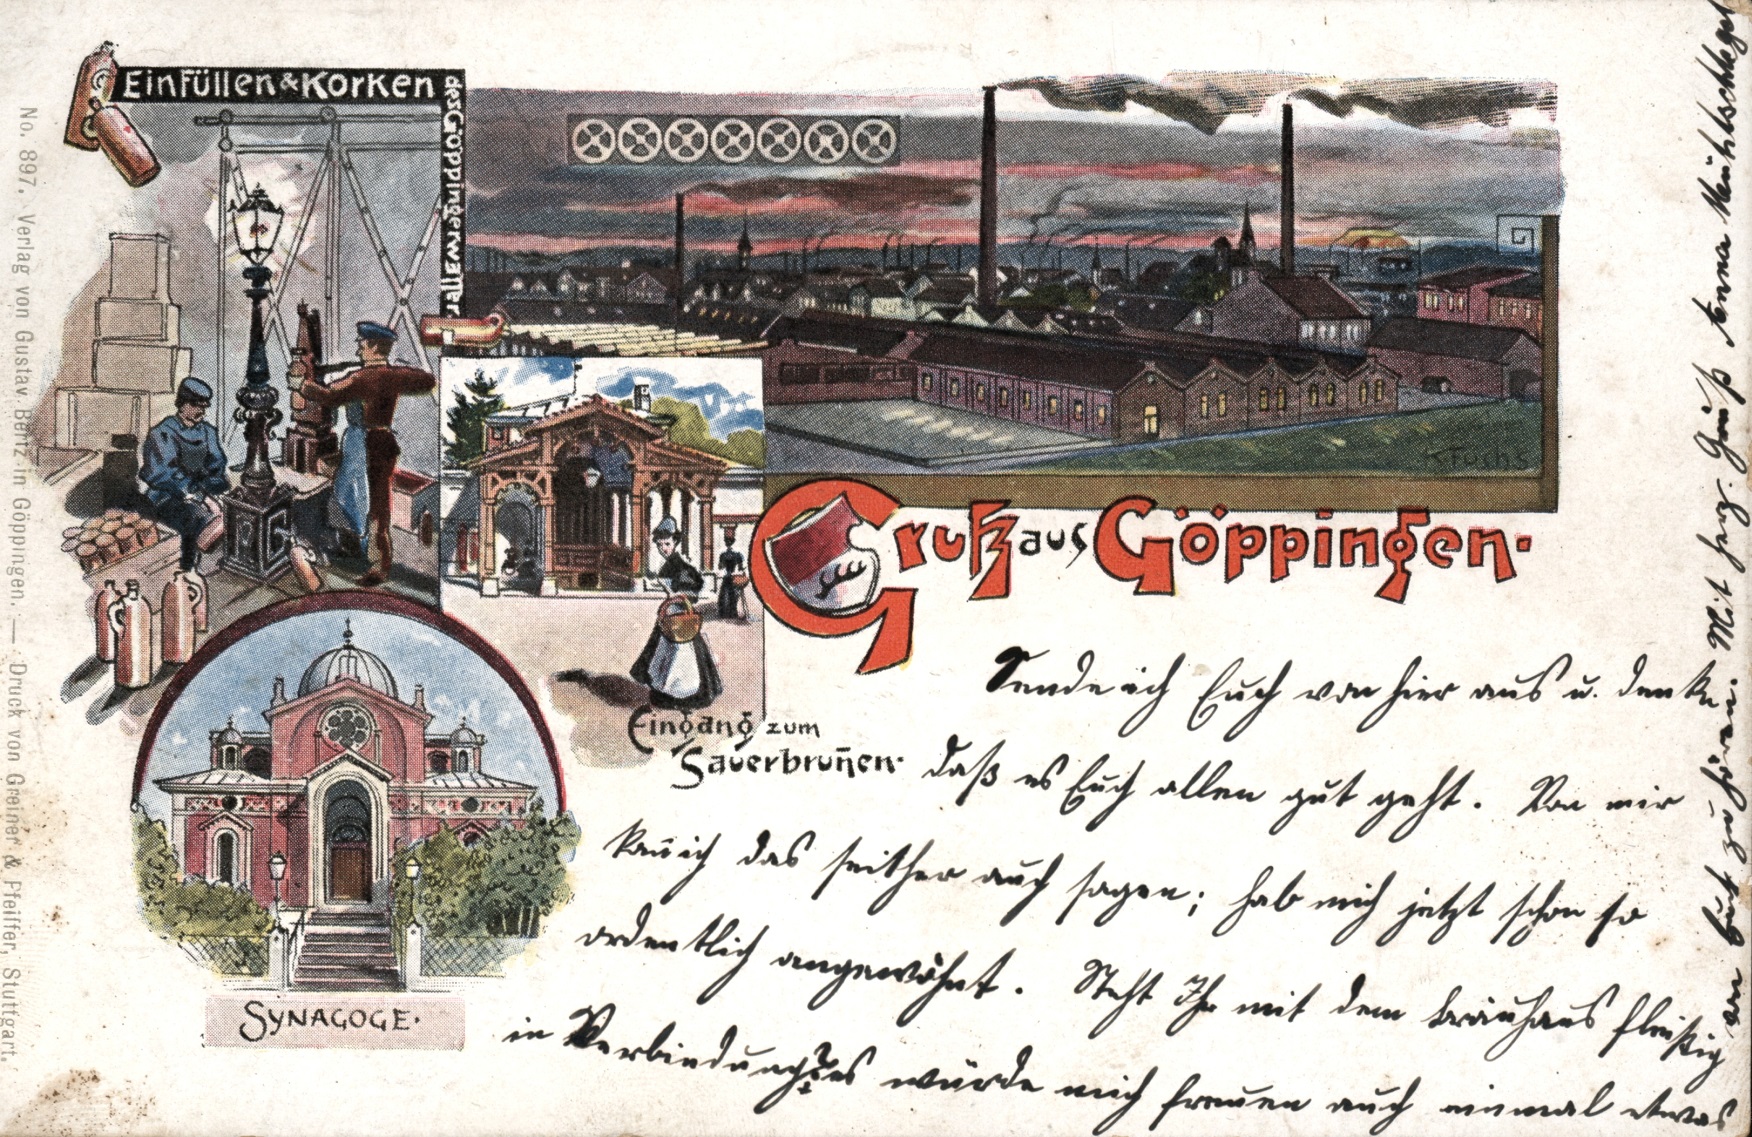 Einfüllen & Korken
des Göppingerwassers
K Fuchs
Gruß aus Göppingen.
Eingang zum
Sauerbrun̄en.
Synagoge.
Sende ich Euch von hier aus u. denke
daß es Euch allen gut geht. Von mir
kan̄ ich das seither auch sagen; hab mich jetzt schon so
ordentlich angewöhnt. Steht Ihr mit dem Bräuhaus fleißig
in Verbindung? es würde mich freuen auch einmal etwas
von Euch zu hören. Mit herz. Gruß
No. 897. Verlag von Gustav Bertz in Göppingen. — Druck von Greiner & Pfeiffer, Stuttgart.